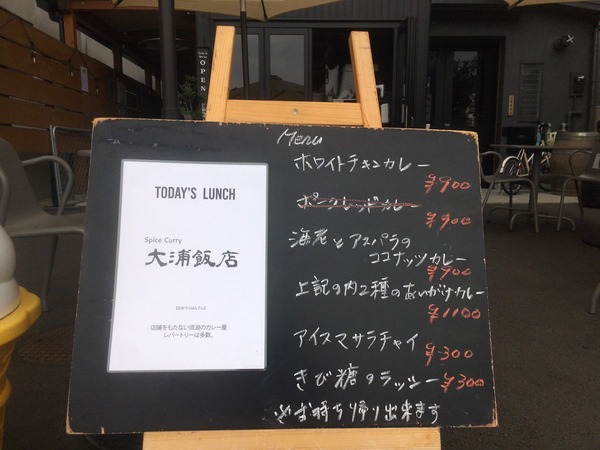 OPEN
TODAY'S LUNCH
Spice Curry
大浦飯店
店舗をもたない流浪のカレー屋
レパートリーは多数。
MENU
ホワイトチキンカレー
¥900
ポークレッドカレー
¥900
海老とアスパラの
ココナッツカレー
¥900
上記の内2種のあいがけカレー
¥1100
アイスマサラチャイ
¥300
きび糖のラッシー ¥300
※お持ち帰り出来ます